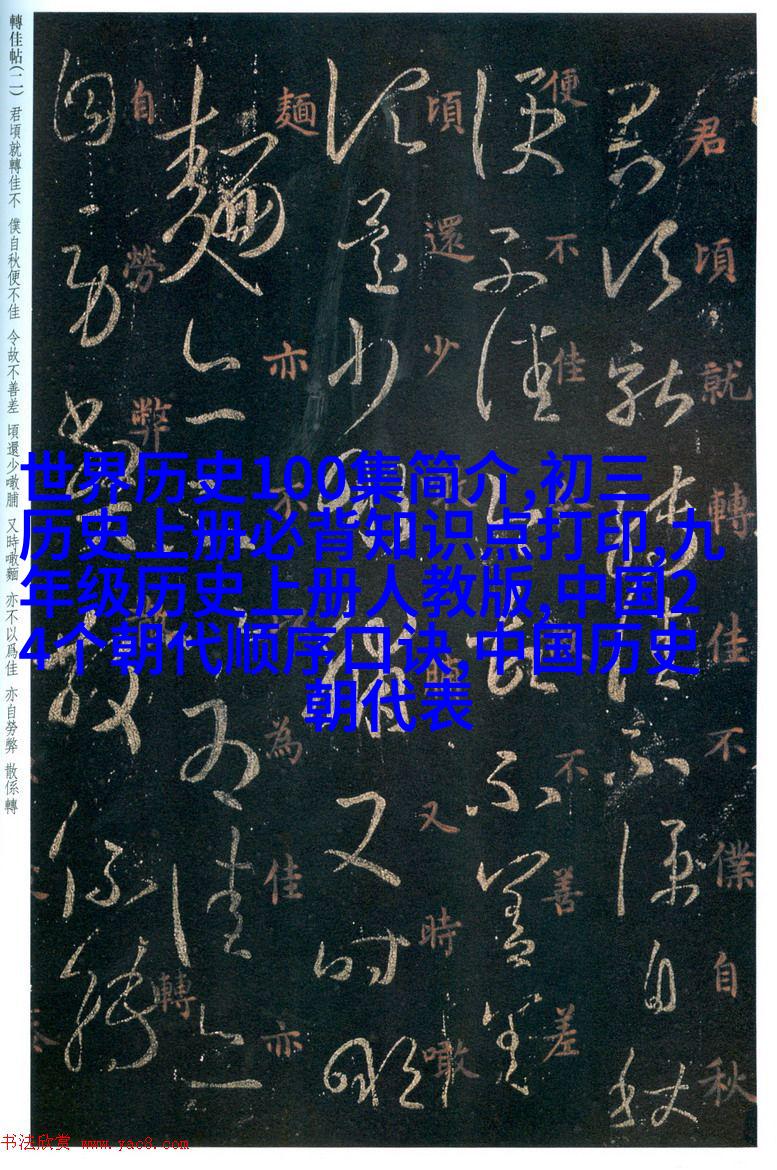 轉佳帖(二) 君頃就轉佳不 僕自秋便不佳 令故不善差 頃還少噉脯 又時噉麵 亦不以爲佳 亦自勞弊 散係轉
君頃就轉佳不僕自秋
君頃就轉佳不僕自秋
便不佳不善差
便不佳不善差
頃還少又時噉
頃還少又時噉
麵亦不為佳亦
麵亦不為佳亦
自勞弊散係轉
自勞弊轉
世界历史100集简介,初三
历史上册必背知识点打印,九
年级历史上册人教版,中国2
4个朝代顺序口诀,中国历史
朝代表
书法欣赏 www.yac8.com